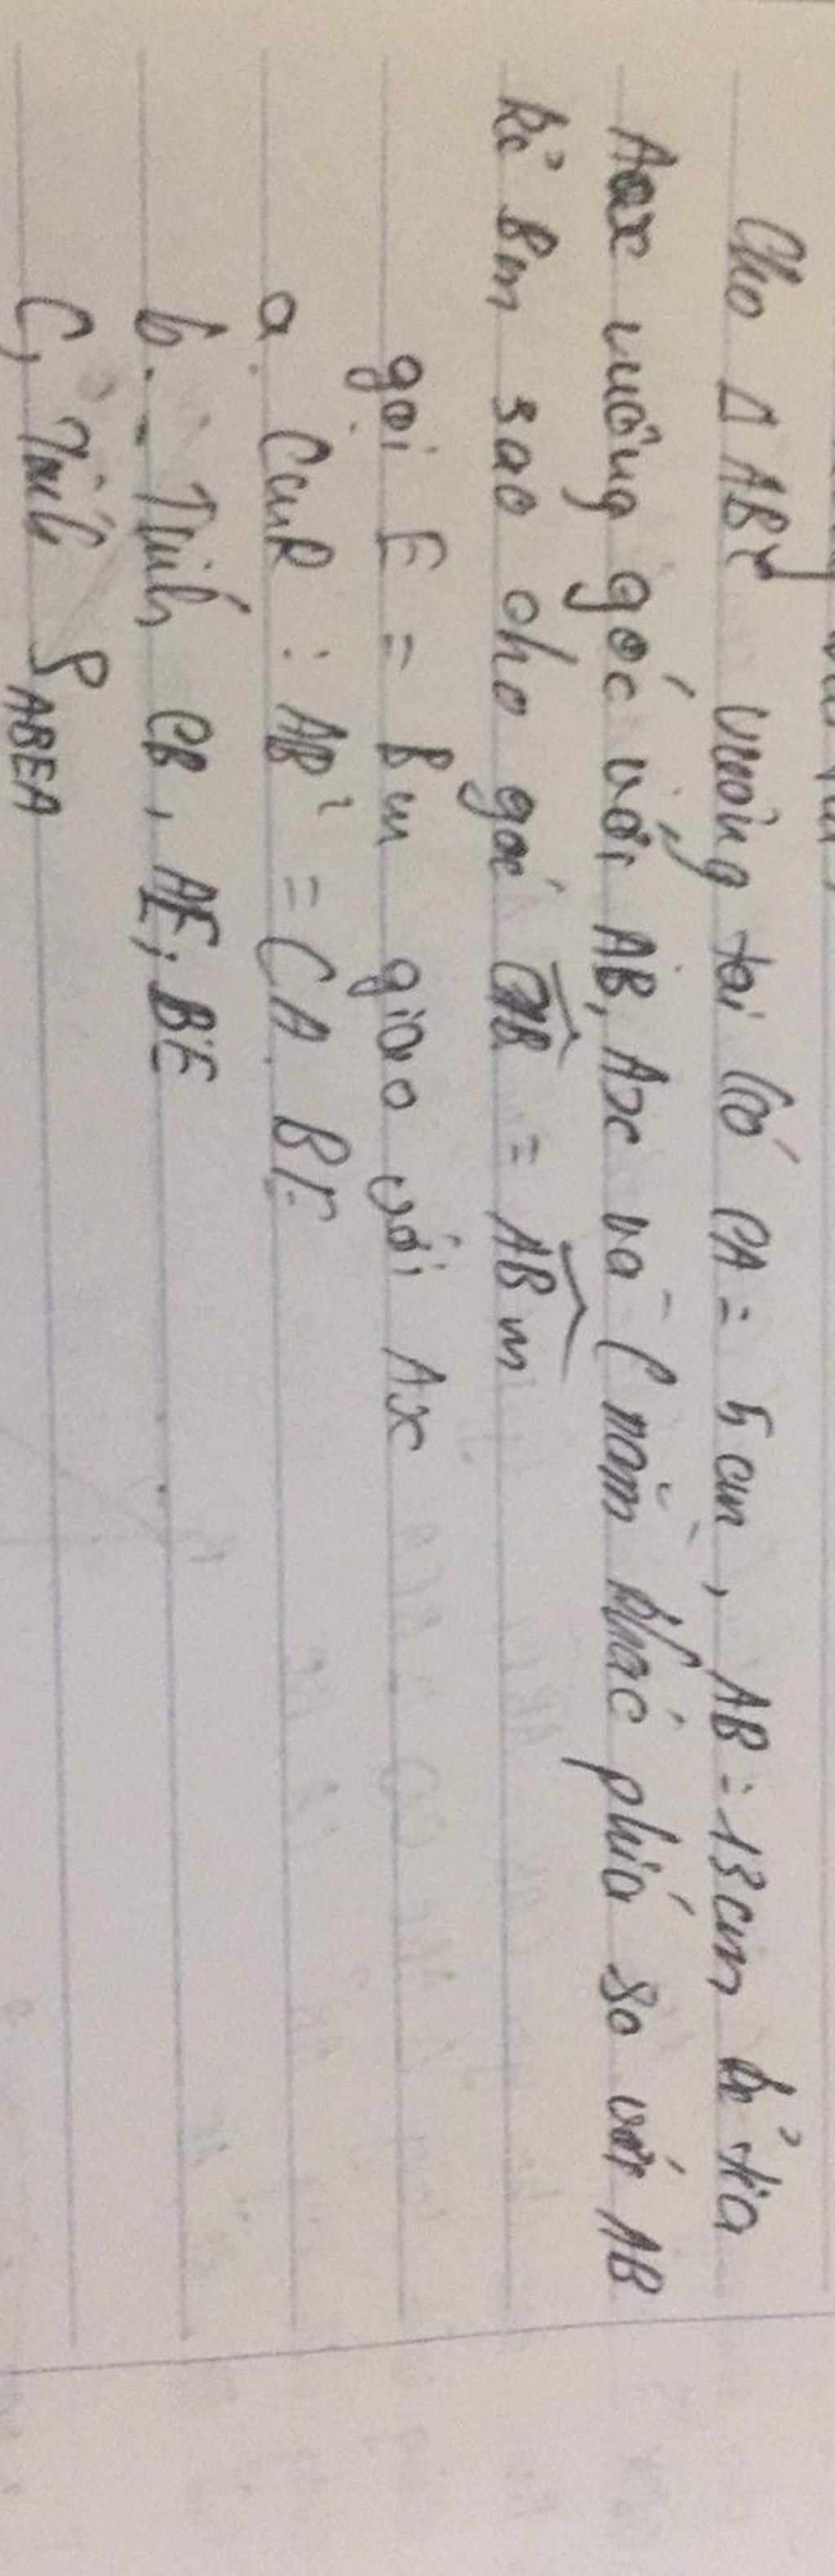 Cho Δ ABC vuông tại C có CA = 5 cm, AB = 13cm kẻ tia
Aax vuông góc với AB, Ax và C nằm khác phía so với AB
kẻ Bm sao cho góc CAB = ABm
gọi E = Bm giao với Ax
a. CmR : AB² = CA. BE
b. Tính CB, AE, BE
C, Tính S ABEA